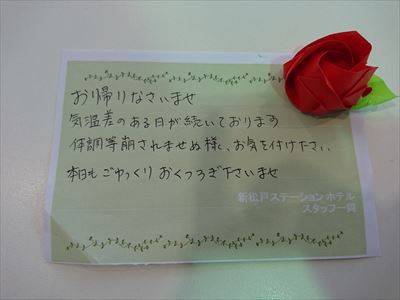 お帰りなさいませ
気温差のある日が続いております
体調等崩されませぬ様に、お気を付け下さい。
本日もごゆっくりおくつろぎ下さいませ
新松戸ステーションホテル
スタッフ一同